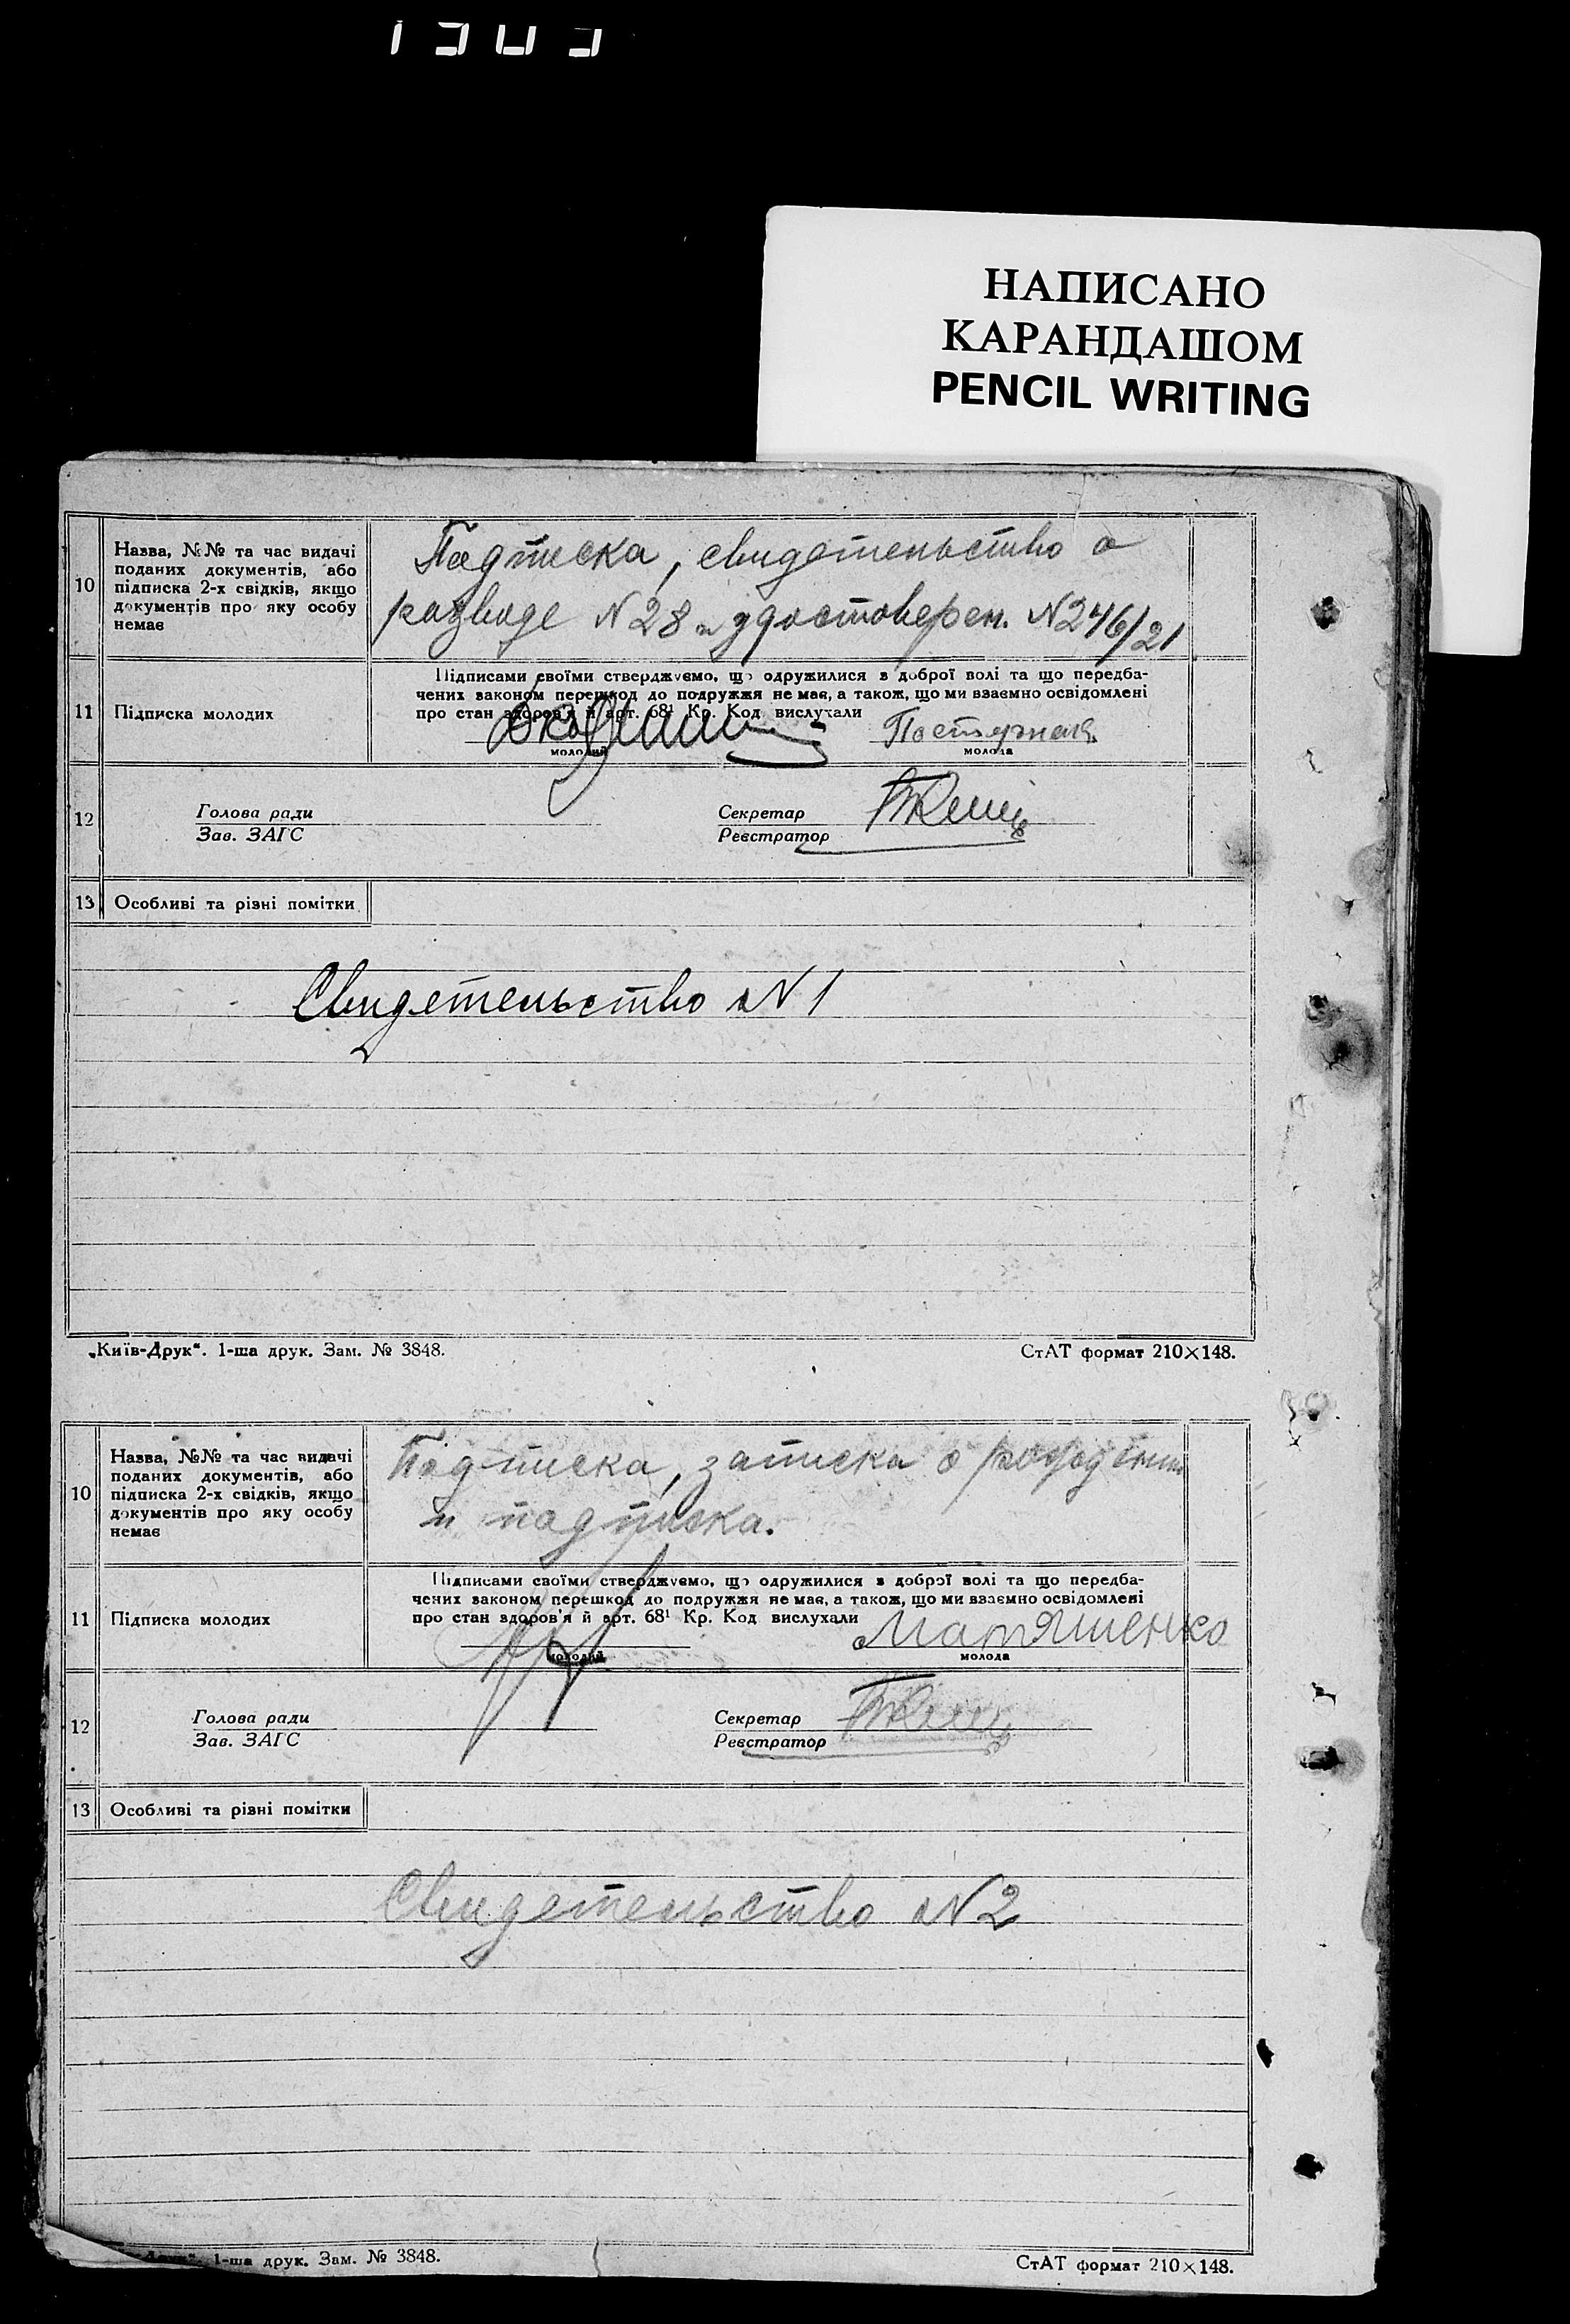 НАПИСАНО
КАРАНДАШОМ
PENCIL WRITING
10
Назва, №№ та час видачі
поданих документів, або
підписка 2-х свідків, якщо
документів про яку особу
немає
Подписка, свидетельство о
разводе N 28 и удостоверен. N 246/21
11
Підписка молодих
Підписами своїми стверджуємо, що одружилися з доброї волі та що передба-
чених законом перешкод до подружжя не має, а також, що ми взаємно освідомлені
про стан здоров'я й арт. 68¹ Кр. Код вислухали
Постужная
молодий
молода
12
Голова ради
Зав. ЗАГС
Секретар
Реєстратор
13
Особливі та різні помітки
Свидетельство N 1
„Київ-Друк“. 1-ша друк. Зам. № 3848.
СтАТ формат 210×148.
10
Назва, №№ та час видачі
поданих документів, або
підписка 2-х свідків, якщо
документів про яку особу
немає
Подписка, записка о
и подписка.
11
Підписка молодих
Підписами своїми стверджуємо, що одружилися з доброї волі та що передба-
чених законом перешкод до подружжя не має, а також, що ми взаємно освідомлені
про стан здоров'я й арт. 68¹ Кр. Код вислухали
Матяшенко
молодий
молода
12
Голова ради
Зав. ЗАГС
Секретар
Реєстратор
13
Особливі та різні помітки
Свидетельство N 2
1-ша друк. Зам. № 3848.
СтАТ формат 210×148.